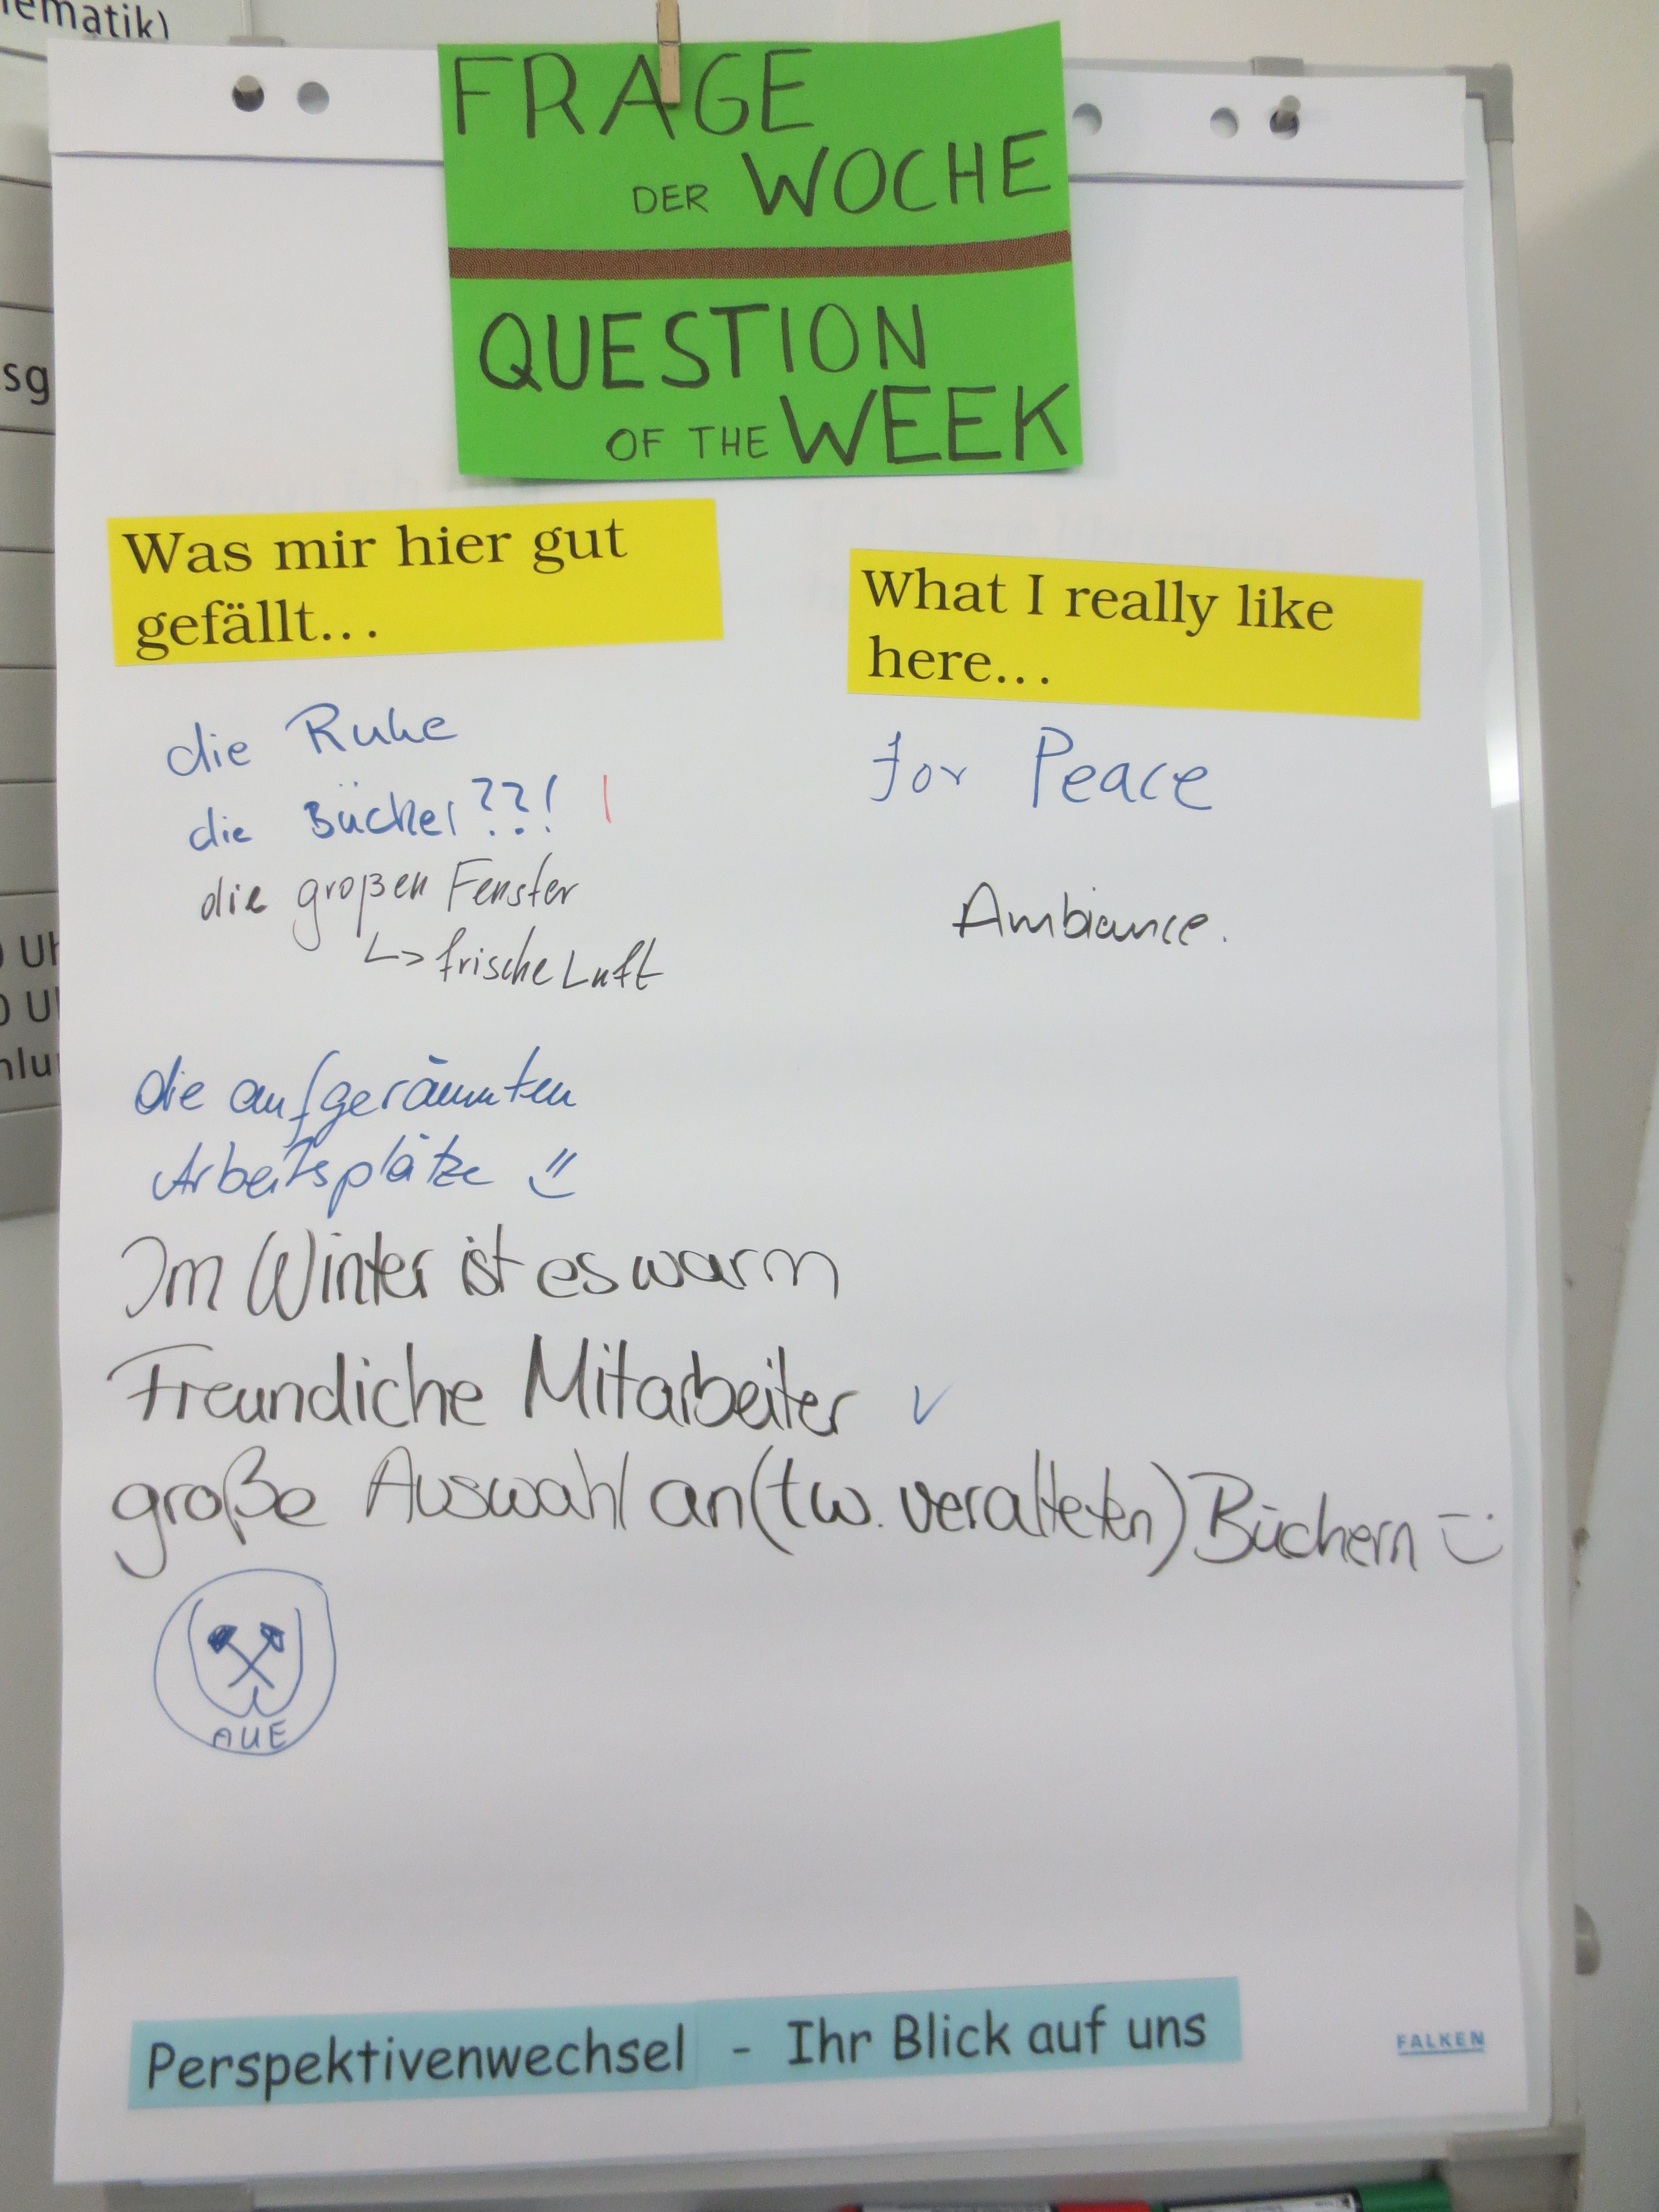 ematik)
sg
Uh
hlu
FRAGE
DER WOCHE
QUESTION
OF THE WEEK
Was mir hier gut
gefällt...
die Ruhe
die Bücher??!
die großen Fenster
↳ frische Luft
die aufgeräumten
Arbeitsplätze
Im Winter ist es warm
Freundiche Mitarbeiter ✓
große Auswahl an (tw. veralteten) Büchern
AUE
What I really like
here...
for Peace
Ambiance.
Perspektivenwechsel - Ihr Blick auf uns
FALKEN